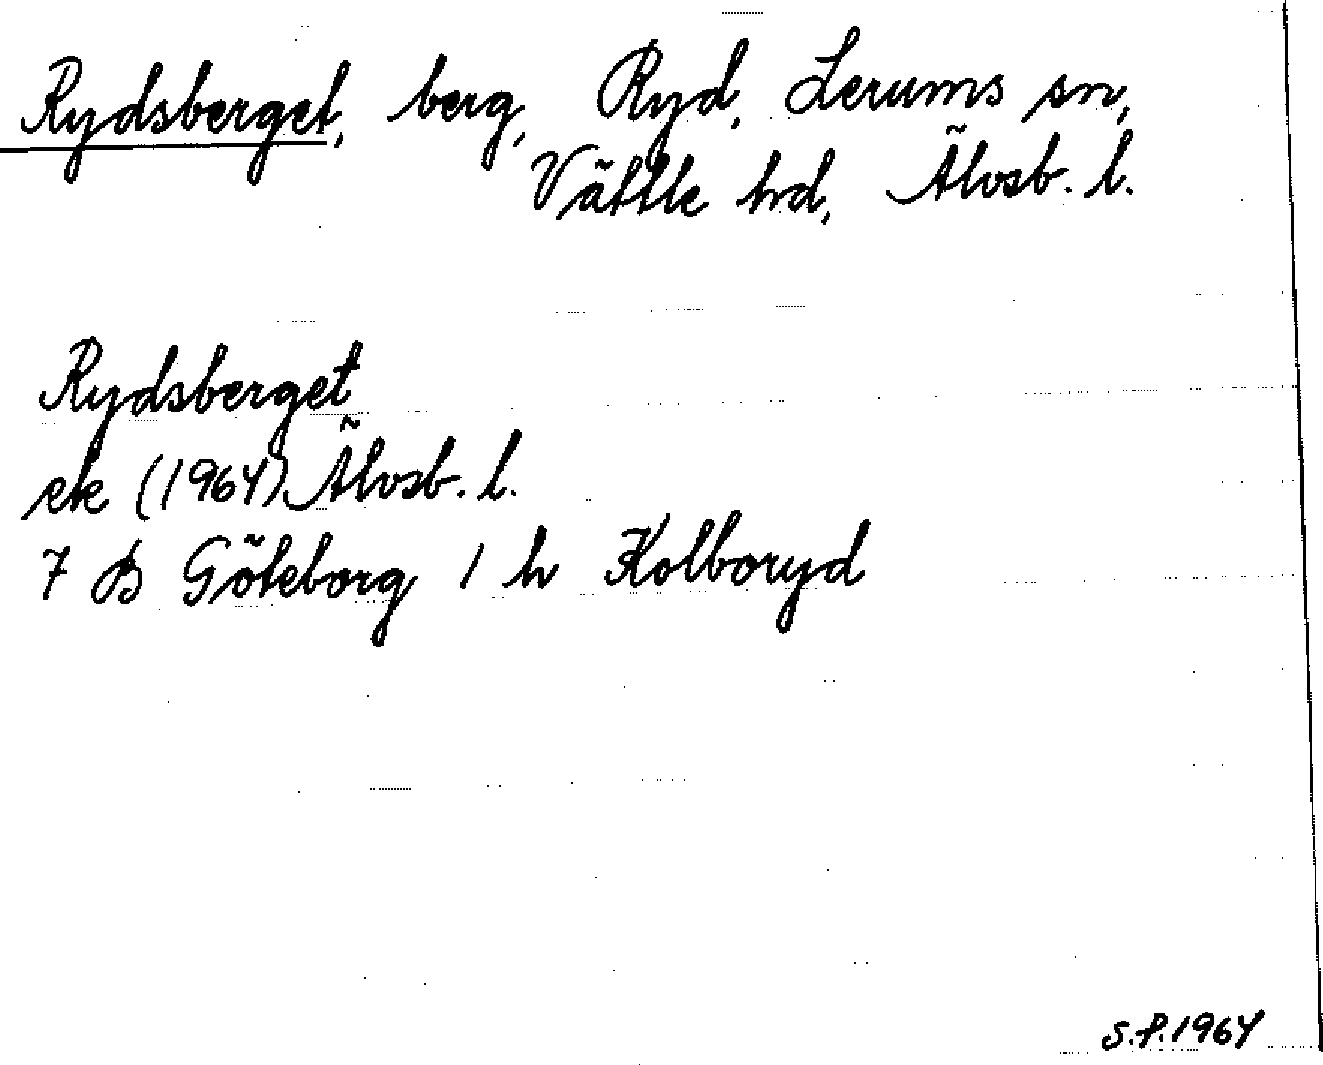 Rydsberget, berg, Ryd, Lerums sn,
Vättle hd, Älvsb. l.
Rydsberget
ek (1964) Älvsb. l.
7 B Göteborg 1 h Kolboryd
S.F. 1964